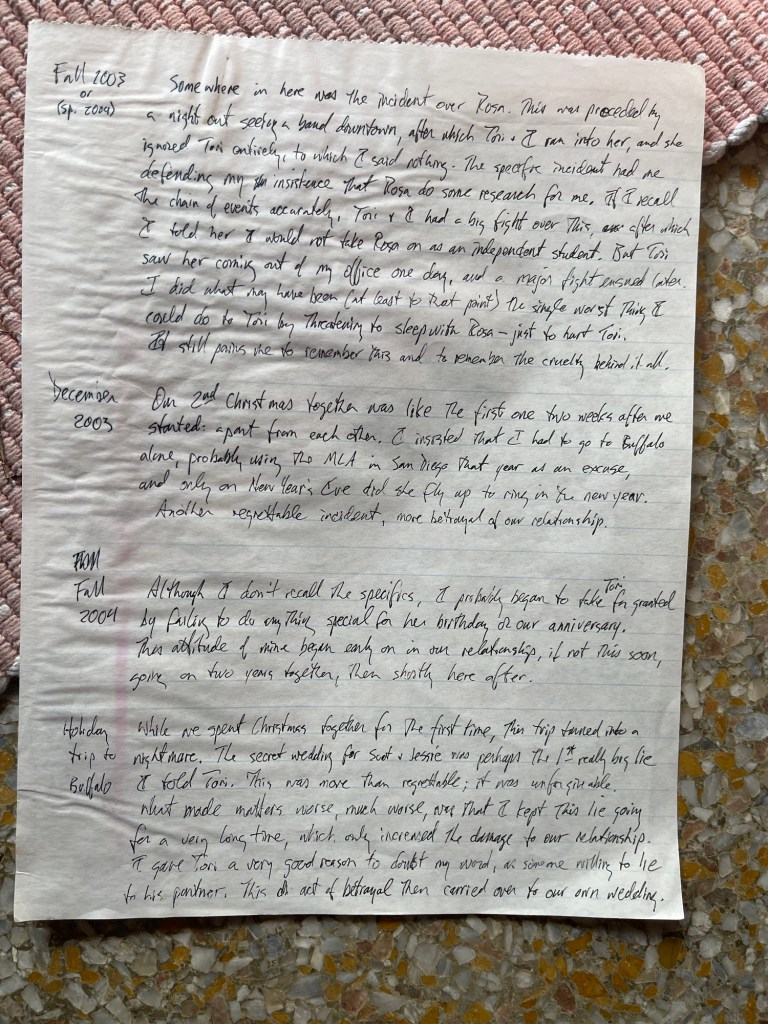 Fall 2003
or
(sp. 2004)
Somewhere in here was the incident over Rosa. This was preceded by
a night out seeing a band downtown, after which Tori + I ran into her, and she
ignored Tori entirely, to which I said nothing. The specific incident had me
defending my insistence that Rosa do some research for me. If I recall
the chain of events accurately, Tori + I had a big fight over this, after which
I told her I would not take Rosa on as an independent student. But Tori
saw her coming out of my office one day, and a major fight ensued later.
I did what may have been (at least to that point) the single worst thing I
could do to Tori by threatening to sleep with Rosa – just to hurt Tori.
It still pains me to remember this and to remember the cruelty behind it all.
December
2003
Our 2nd Christmas together was like the first one two weeks after we
started: apart from each other. I insisted that I had to go to Buffalo
alone, probably using the MLA in San Diego that year as an excuse,
and only on New Year's Eve did she fly up to ring in the new year.
Another regrettable incident, more betrayal of our relationship.
Fall
2004
Although I don't recall the specifics, I probably began to take Tori for granted
by failing to do anything special for her birthday or our anniversary.
This attitude of mine began early on in our relationship, if not this soon,
going on two years together, then shortly here after.
Holiday
trip to
Buffalo
While we spent Christmas together for the first time, this trip turned into a
nightmare. The secret wedding for Scot + Jessie was perhaps the 1st really big lie
I told Tori. This was more than regrettable; it was unforgivable.
What made matters worse, much worse, was that I kept this lie going
for a very long time, which only increased the damage to our relationship.
It gave Tori a very good reason to doubt my word, as someone willing to lie
to his partner. This act of betrayal then carried over to our own wedding.